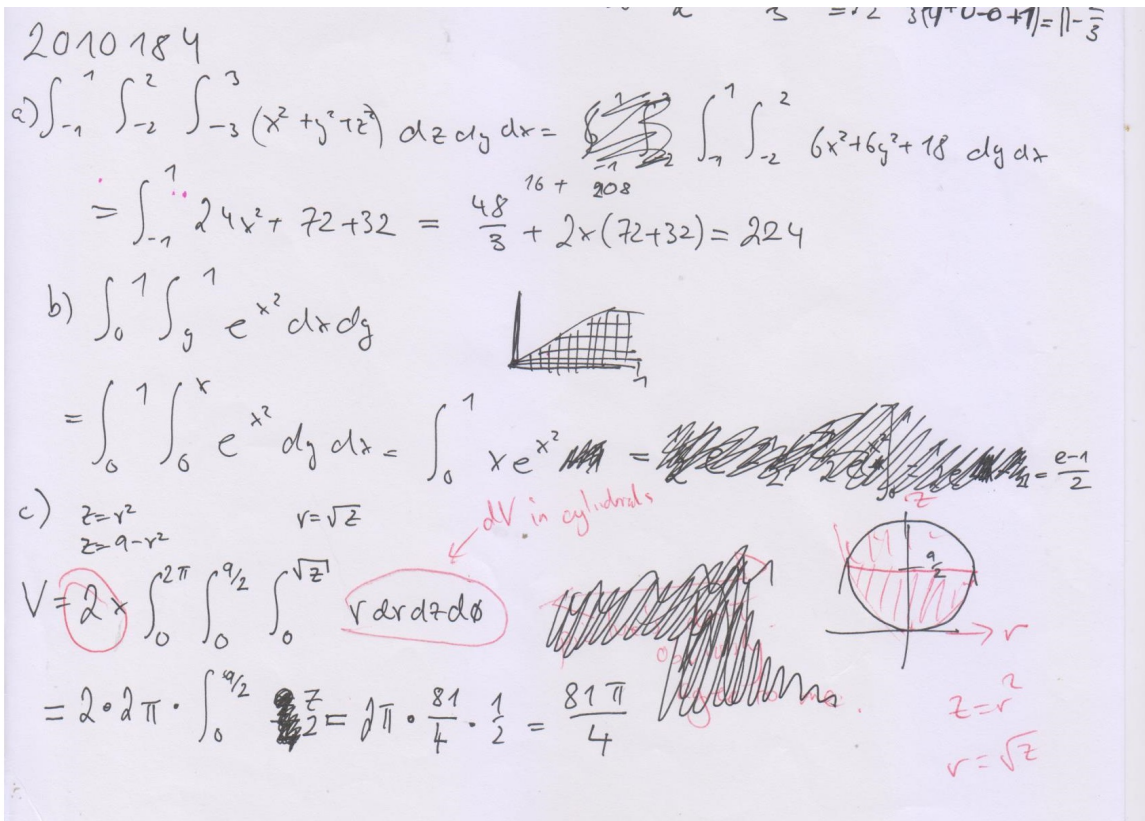 3(4+0-0+1)=11-5/3
2010 18 4
a) ∫_{-1}^{1} ∫_{-2}^{2} ∫_{-3}^{3} (x²+y²+z²) dz dy dx = ∫_{-1}^{1} ∫_{-2}^{2} 6x²+6y²+18 dy dx
16 + 208
= ∫_{-1}^{1} 24x²+72+32 = 48/3 + 2x(72+32) = 224
b) ∫_{0}^{1} ∫_{y}^{1} e^{x²} dx dy
1
= ∫_{0}^{1} ∫_{0}^{x} e^{x²} dy dx = ∫_{0}^{1} x e^{x²} = = e-1/2
c) z=r² r=√z
z=9-r²
dV in cylindrals
z
9/2
V = 2x ∫_{0}^{2π} ∫_{0}^{9/2} ∫_{0}^{√z} r dr dz dø
r
= 2·2π· ∫_{0}^{9/2} z/2 = 2π · 81/4 · 1/2 = 81π/4
z=r²
r=√z